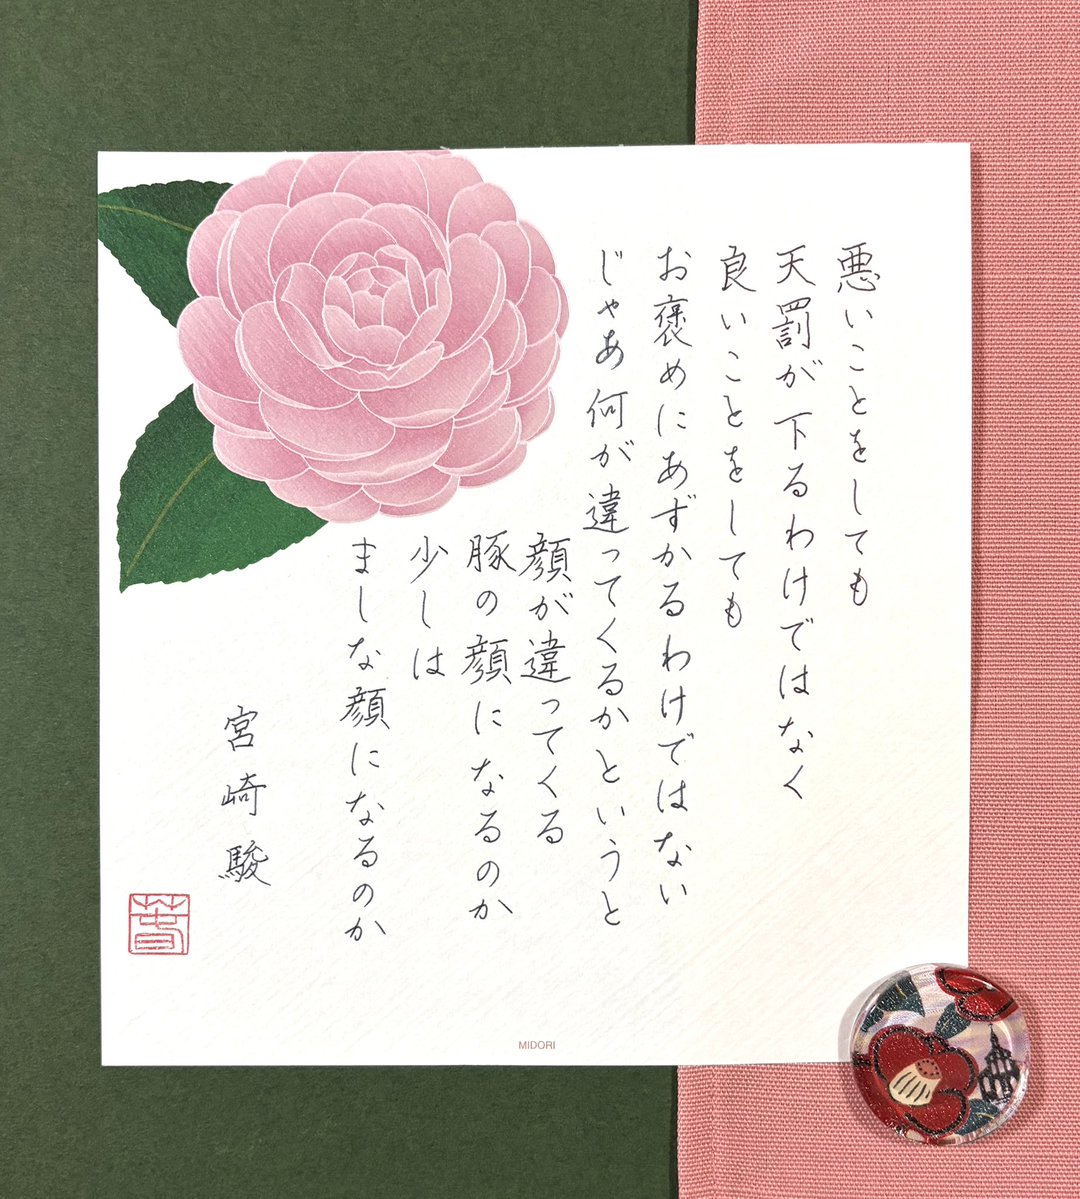 悪いことをしても
天罰が下るわけではなく
良いことをしても
お褒めにあずかるわけではない
じゃあ何が違ってくるかというと
顔が違ってくる
豚の顔になるのか
少しは
ましな顔になるのか
宮崎駿
MIDORI